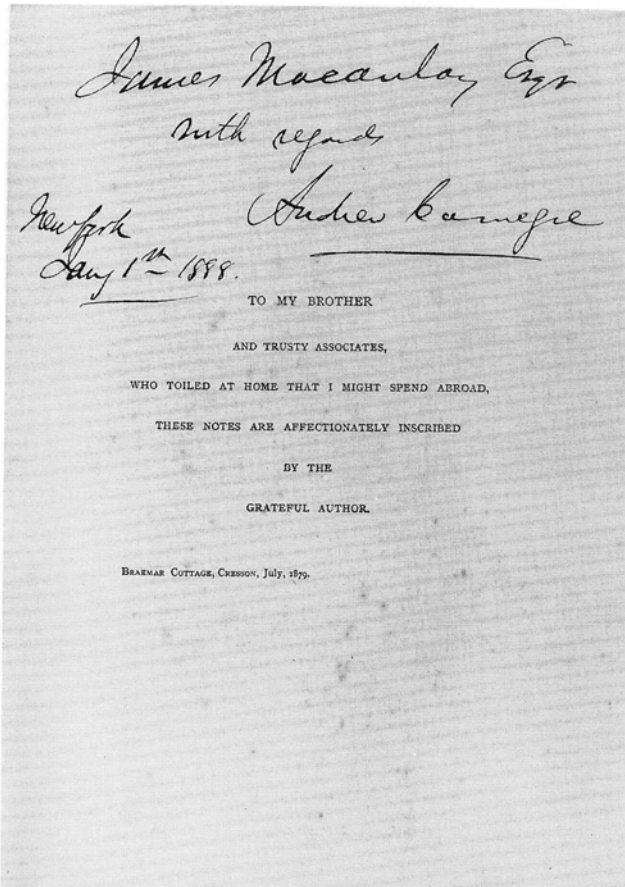 James Macaulay Esqr
with regards
Andrew Carnegie
New York
Jany 1st 1888.
TO MY BROTHER
AND TRUSTY ASSOCIATES,
WHO TOILED AT HOME THAT I MIGHT SPEND ABROAD,
THESE NOTES ARE AFFECTIONATELY INSCRIBED
BY THE
GRATEFUL AUTHOR.
BRAEMAR COTTAGE, CRESSON, July, 1879.